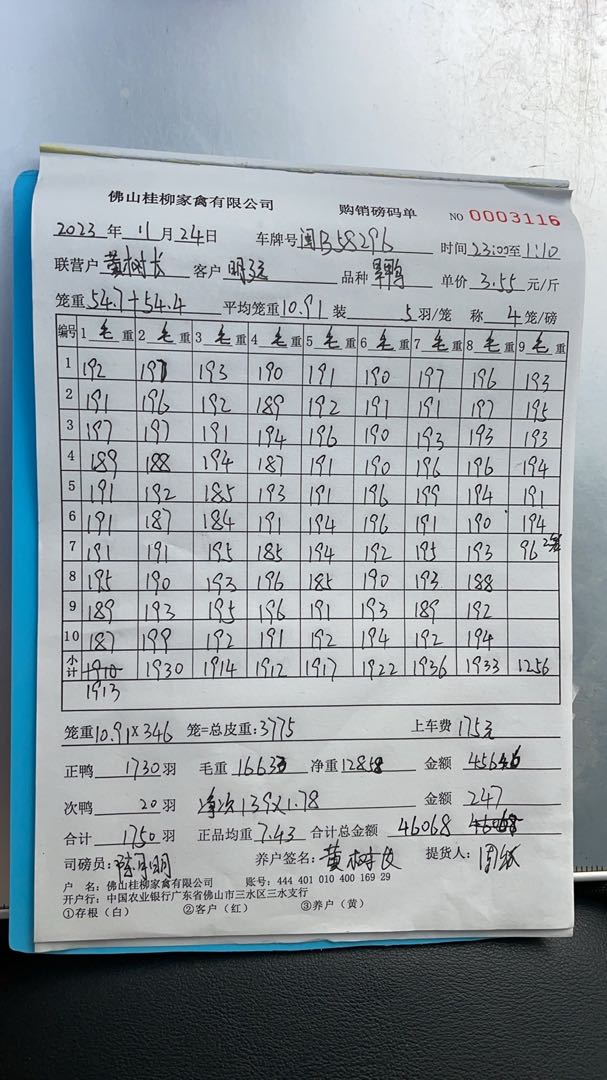 佛山桂柳家禽有限公司 购销磅码单 NO 0003116
2023 年 11 月 24 日 车牌号 闽B58296 时间 23:00至1:10
联营户 黄树长 客户 明 品种 鸭 单价 3.55 元/斤
笼重 54.7+54.4 平均笼重 10.91 装 5 羽/笼 称 4 笼/磅
编号 1 毛重 2 毛重 3 毛重 4 毛重 5 毛重 6 毛重 7 毛重 8 毛重 9 毛重
1 192 197 193 190 191 190 197 196 193
2 191 196 192 189 192 191 191 197 195
3 197 197 191 194 196 190 193 193 193
4 189 188 194 187 191 190 196 196 194
5 191 192 185 193 191 196 199 194 191
6 191 187 184 191 194 196 191 190 194
7 191 191 195 185 194 192 195 193 96 2笼
8 195 190 193 196 185 190 193 188
9 189 193 195 196 191 193 189 192
10 187 199 192 191 192 194 192 194
小计 1910 1930 1914 1912 1917 1922 1936 1933 1256
1913
笼重 10.91×346 笼=总皮重: 3775 上车费 175元
正鸭 1730 羽 毛重 16633 净重 12858 金额 45646
次鸭 20 羽 净次139×1.78 金额 247
合计 1750 羽 正品均重 7.43 合计总金额 46068 46068
司磅员: 陈 明 养户签名: 黄树 提货人: 周
户 名: 佛山桂柳家禽有限公司 账号: 444 401 010 400 169 29
开户行: 中国农业银行广东省佛山市三水区三水支行
①存根（白） ②客户（红） ③养户（黄）